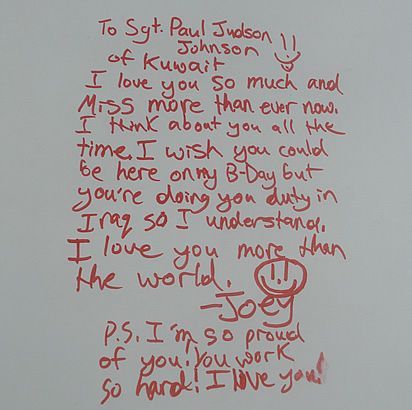 To Sgt. Paul Judson
Johnson
of Kuwait
I love you so much and
Miss more than ever now.
I think about you all the
time. I wish you could
be here on my B-Day but
you're doing you duty in
Iraq so I understand.
I love you more than
the world.
-Joey
P.S. I'm so proud
of you! You work
so hard! I love you!